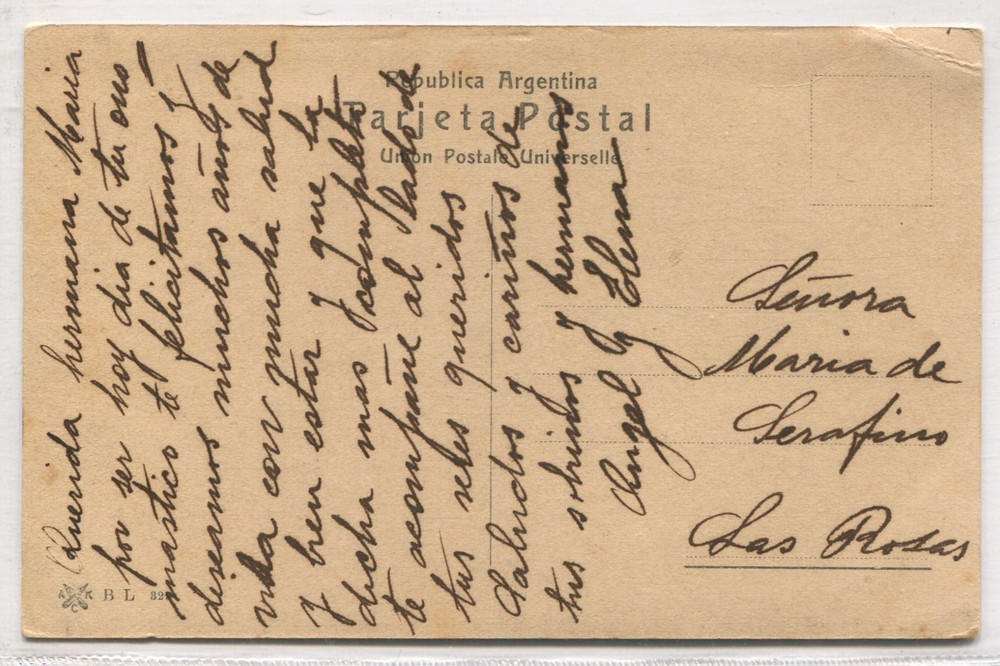 Republica Argentina
Tarjeta Postal
Union Postale Universelle
Querida hermana Maria
por ser hoy dia de tu ono
mastico te felicitamos y
diseamos muchos años de
vida con mucha salud
y bien estar y que la
dicha mas completa
te acompañe al lado de
tus seres queridos
Saludos y cariños de
tus sobrinos y hermanos
Angel y Elena
Señora
Maria de
Serafino
Las Rosas
A K C
B L